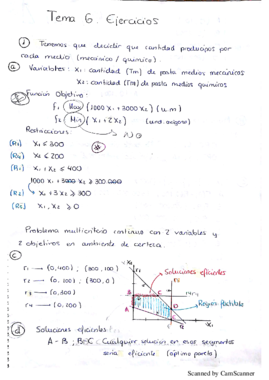 Tema 6. Ejercicios
① Tenemos que decidir que cantidad producimos por
cada medio (mecánico / químico).
ⓐ Variables: X₁: cantidad (Tm) de pasta medios mecánicos
X₂: cantidad (Tm) de pasta medios químicos
ⓑ Función Objetivo:
f₁ Max (1000 X₁ + 3000 X₂) (u.m)
f₂ Min (X₁ + 2 X₂) (und. oxígeno)
Restricciones:
(R₃) X₁ ≤ 300
(R₄) X₂ ≤ 200
(R₁) X₁ + X₂ ≤ 400
1000 X₁ + 3000 X₂ ≥ 300.000
(R₂) X₁ + 3 X₂ ≥ 300
(R₅) X₁, X₂ ≥ 0
Problema multicriterio continuo con 2 variables y
2 objetivos en ambiente de certeza.
ⓒ
r₁ → (0,400) ; (300,100)
r₂ → (0,100) ; (300,0)
r₃ → (0,300)
r₄ → (0,200)
Soluciones eficientes
Región factible
ⓓ Soluciones eficientes:
A-B ; B-C: Cualquier solución en ese segmento
sería eficiente (óptimo pareto)
Scanned by CamScanner